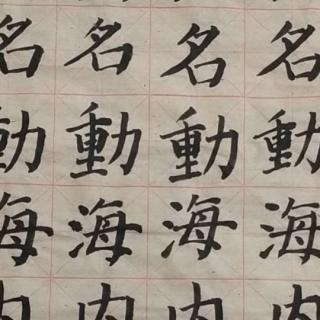 名名名名
動動動動
海海海海
内内内内